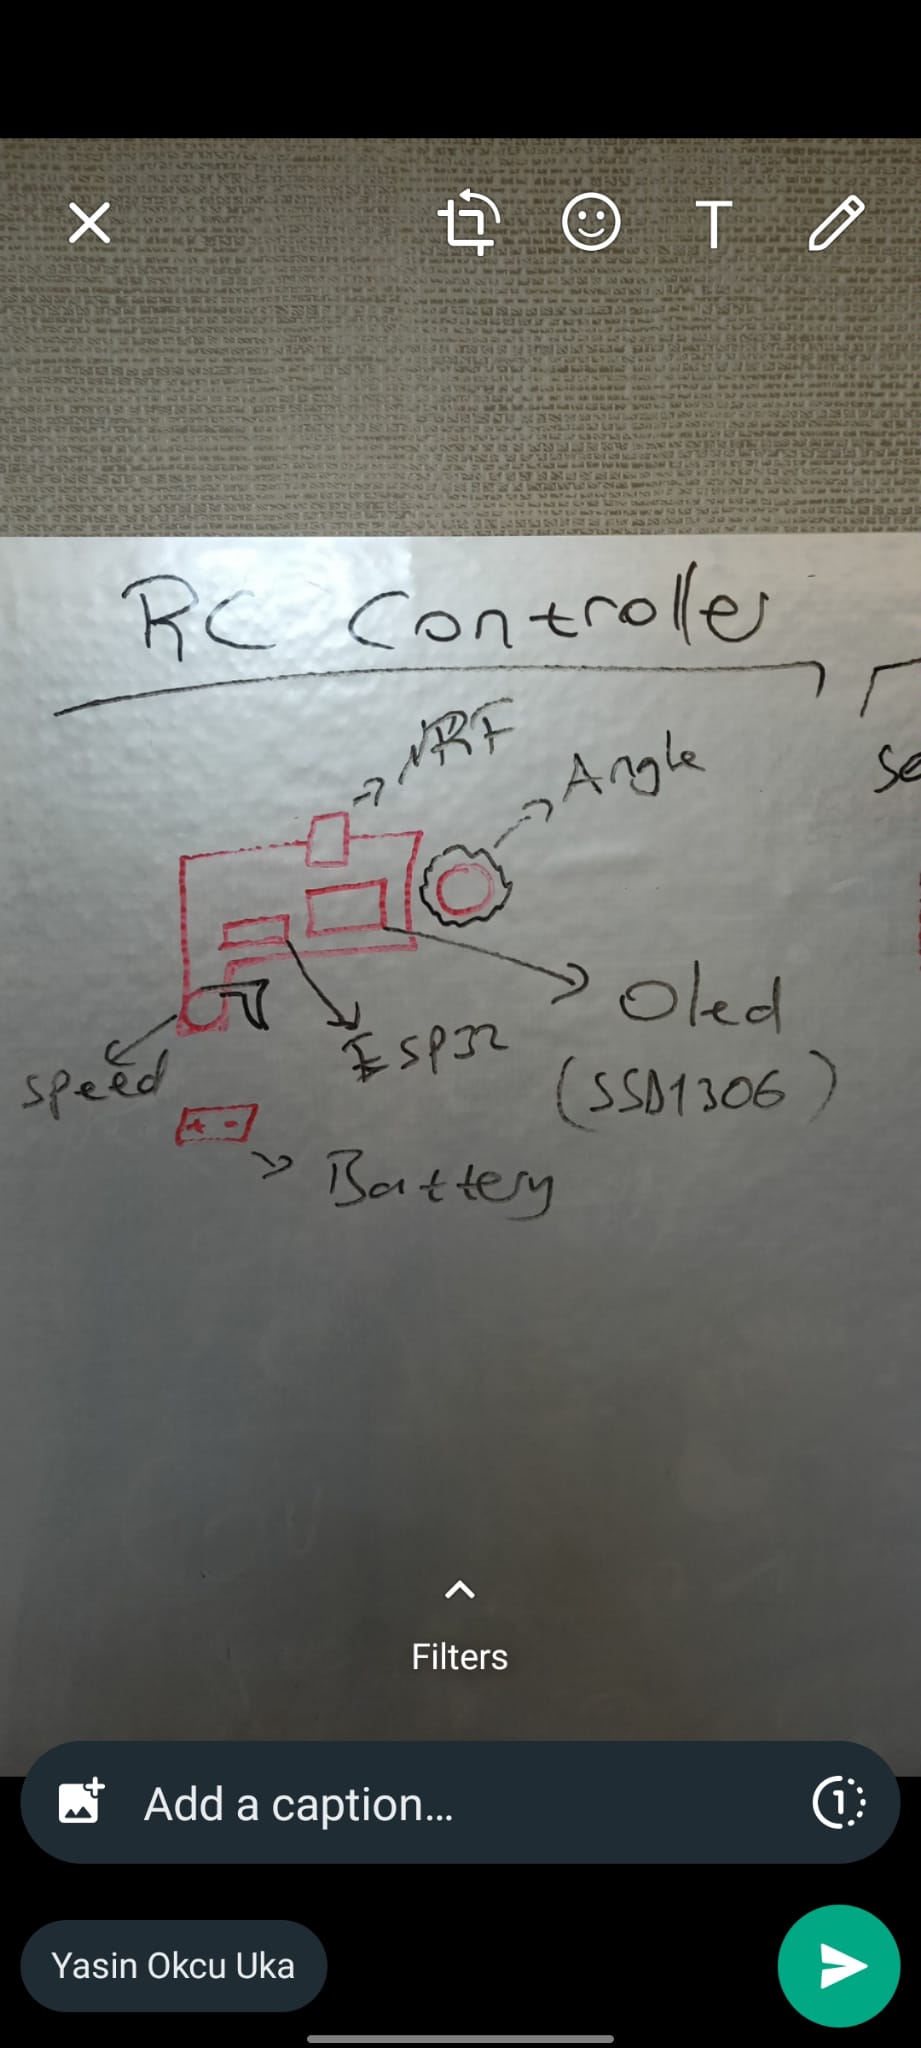 T
RC Controller
NRF
Angle
Se
Oled
ESP32
(SSD1306)
speed
+ -
Battery
Filters
Add a caption...
1
Yasin Okcu Uka